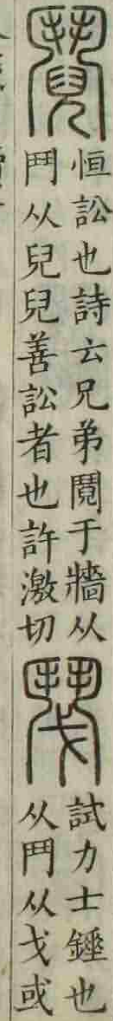 鬩
恒訟也詩云兄弟鬩于牆从
鬥从兒兒善訟者也許激切
試力士錘也
从鬥从戈或